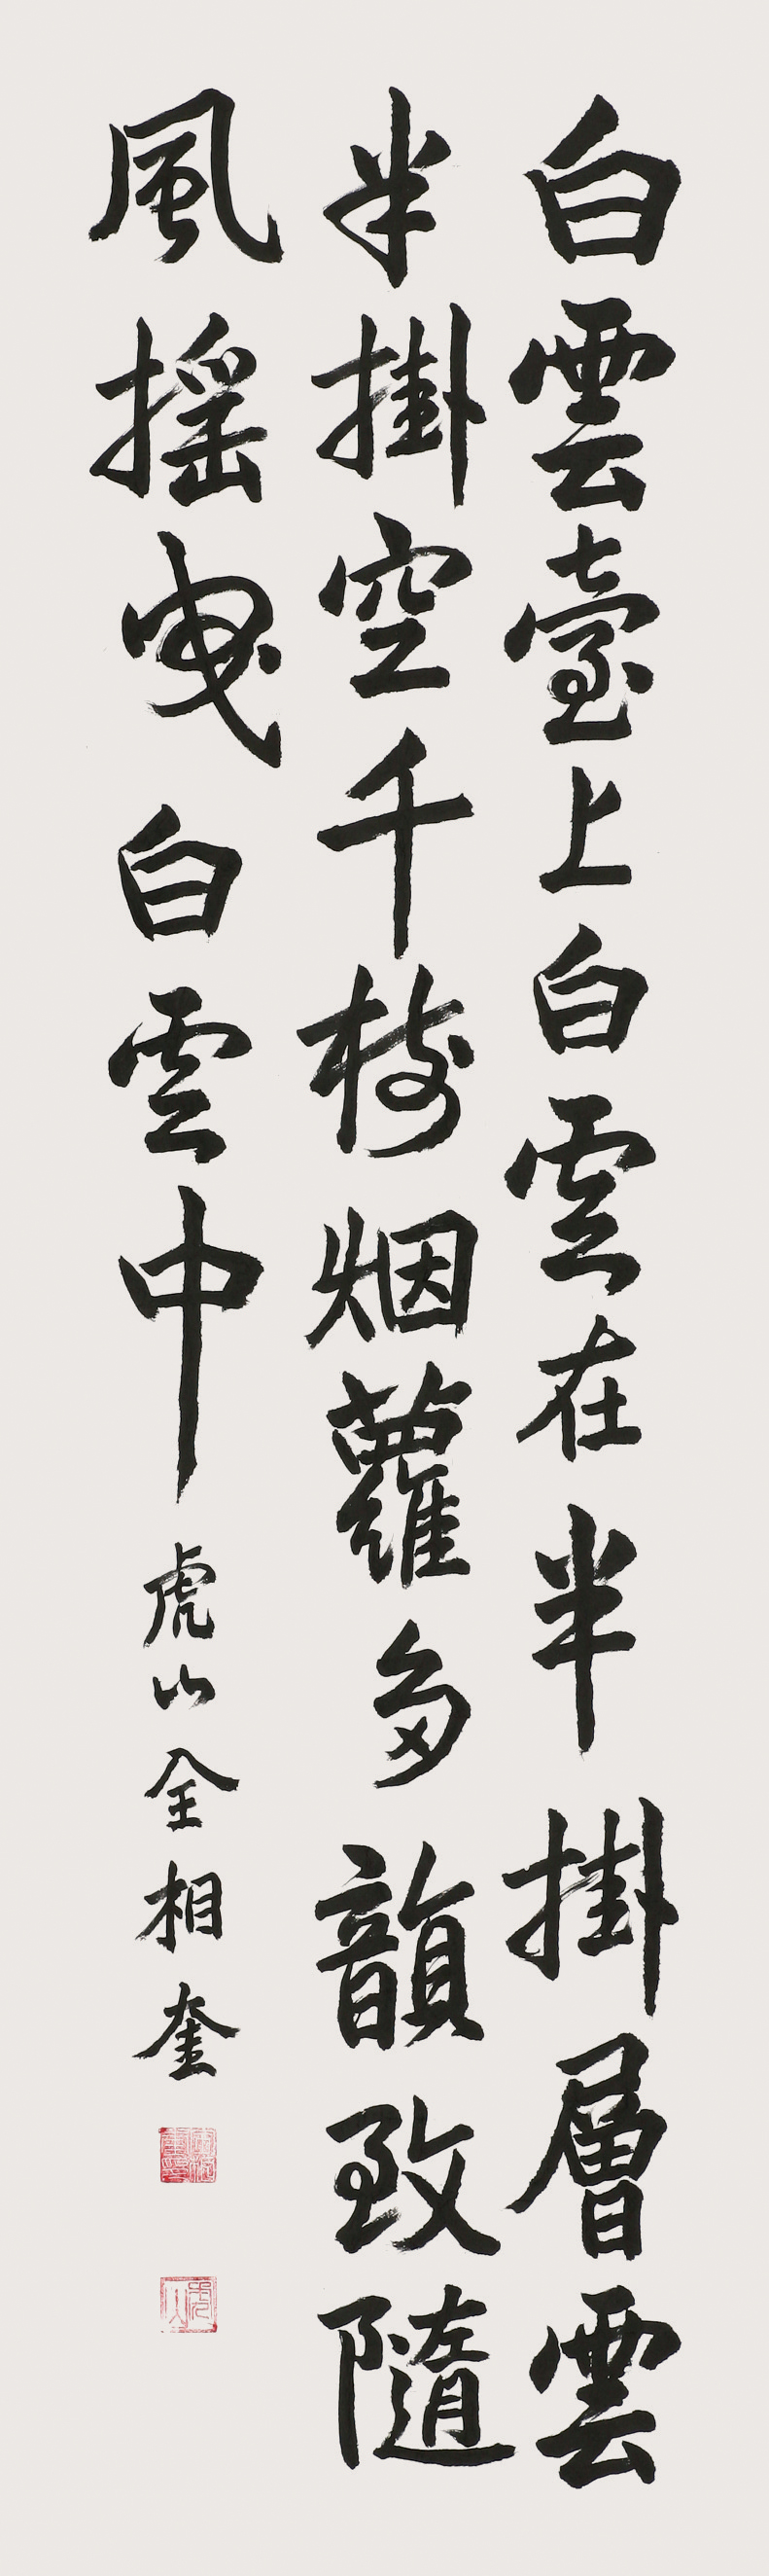 白雲臺上白雲在半掛層雲
半掛空千枝烟蘿多韻致隨
風搖曳白雲中
虎山全相奎